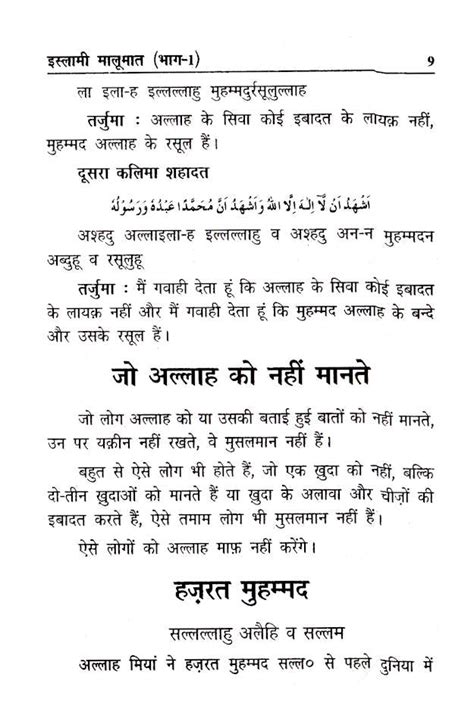 इस्लामी मालूमात (भाग-1) 9
ला इला-ह इल्लल्लाहु मुहम्मदुर्रसूलुल्लाह
तर्जुमा : अल्लाह के सिवा कोई इबादत के लायक़ नहीं,
मुहम्मद अल्लाह के रसूल हैं।
दूसरा कलिमा शहादत
اَشْهَدُ اَنْ لَّا اِلٰهَ اِلَّا اللّٰهُ وَاَشْهَدُ اَنَّ مُحَمَّدًا عَبْدُهٗ وَرَسُوْلُهٗ
अश्हदु अल्लाइला-ह इल्लल्लाहु व अश्हदु अन-न मुहम्मदन
अब्दुहू व रसूलुहू
तर्जुमा : मैं गवाही देता हूं कि अल्लाह के सिवा कोई इबादत
के लायक़ नहीं और मैं गवाही देता हूं कि मुहम्मद अल्लाह के बन्दे
और उसके रसूल हैं।
जो अल्लाह को नहीं मानते
जो लोग अल्लाह को या उसकी बताई हुई बातों को नहीं मानते,
उन पर यक़ीन नहीं रखते, वे मुसलमान नहीं हैं।
बहुत से ऐसे लोग भी होते हैं, जो एक ख़ुदा को नहीं, बल्कि
दो-तीन ख़ुदाओं को मानते हैं या ख़ुदा के अलावा और चीज़ों की
इबादत करते हैं, ऐसे तमाम लोग भी मुसलमान नहीं हैं।
ऐसे लोगों को अल्लाह माफ़ नहीं करेंगे।
हज़रत मुहम्मद
सल्लल्लाहु अलैहि व सल्लम
अल्लाह मियां ने हज़रत मुहम्मद सल्ल० से पहले दुनिया में